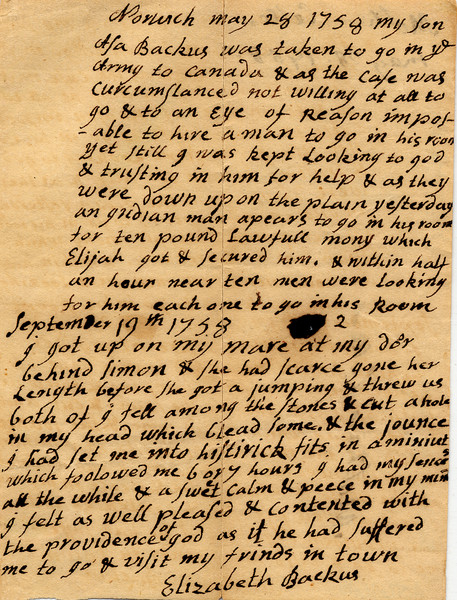 Norwich may 28 1758 my son
Asa Backus was taken to go in ye
Army to Canada & as the Case was
Curcumstanced not willing at all to
go & to an Eye of Reason impos-
-able to hire a man to go in his room
yet still I was kept Looking to god
& trusting in him for help & as they
were down upon the plain yesterday
an Indian man apears to go in his room
for ten pound Lawfull mony which
Elijah got & secured him. & within half
an hour near ten men were looking
for him each one to go in his Room
September 19th 1758 2
I got up on my mare at my dor
behind simon & she had scarce gone her
Length before she got a jumping & threw us
both of I fell among the stones & cut a hole
in my head which blead some. & the jounce
I had set me into histirick fits in a miniut
which foolowed me 6 or 7 hours I had my senses
all the while & a swet Calm & peece in my mind
I felt as well pleased & contented with
the providence of god as if he had suffered
me to go & visit my frinds in town
Elizabeth Backus